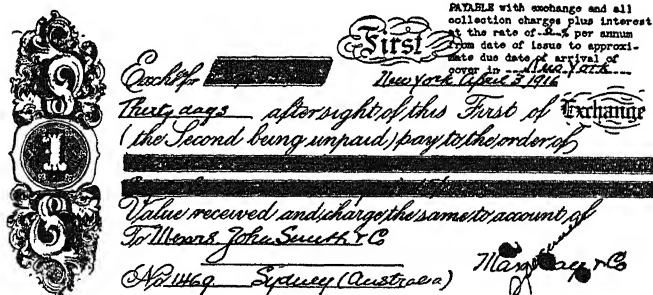 PAYABLE with exchange and all
collection charges plus interest
at the rate of % per annum
from date of issue to approxi-
mate due date of arrival of
cover in New York
First
Exch. for
New York April 3 1916
Thirty days after sight of this First of Exchange
(the Second being unpaid) pay to the order of
Value received and charge the same to account of
To Messrs. John Smith & Co
No. 1469 Sydney (Australia)
& Co
1